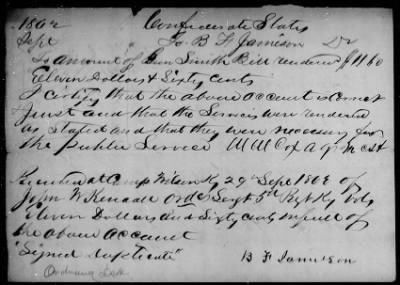 1862 Confederate States
Sept To B F Jamieson Dr
To amount of Gun Smith Bill rendered $11.60
Eleven Dollars & Sixty cents
I certify that the above account is correct
Just and that the Services were rendered
as stated and that they were necessary for
the public Service W M Cox
Camp Wilson Ky 29th Sept 186 of
John W Kincade Ord Sergt 5th Regt Ky Vols
Eleven Dollars and Sixty cents in full of
the above account
"Signed duplicate"
B F Jamieson